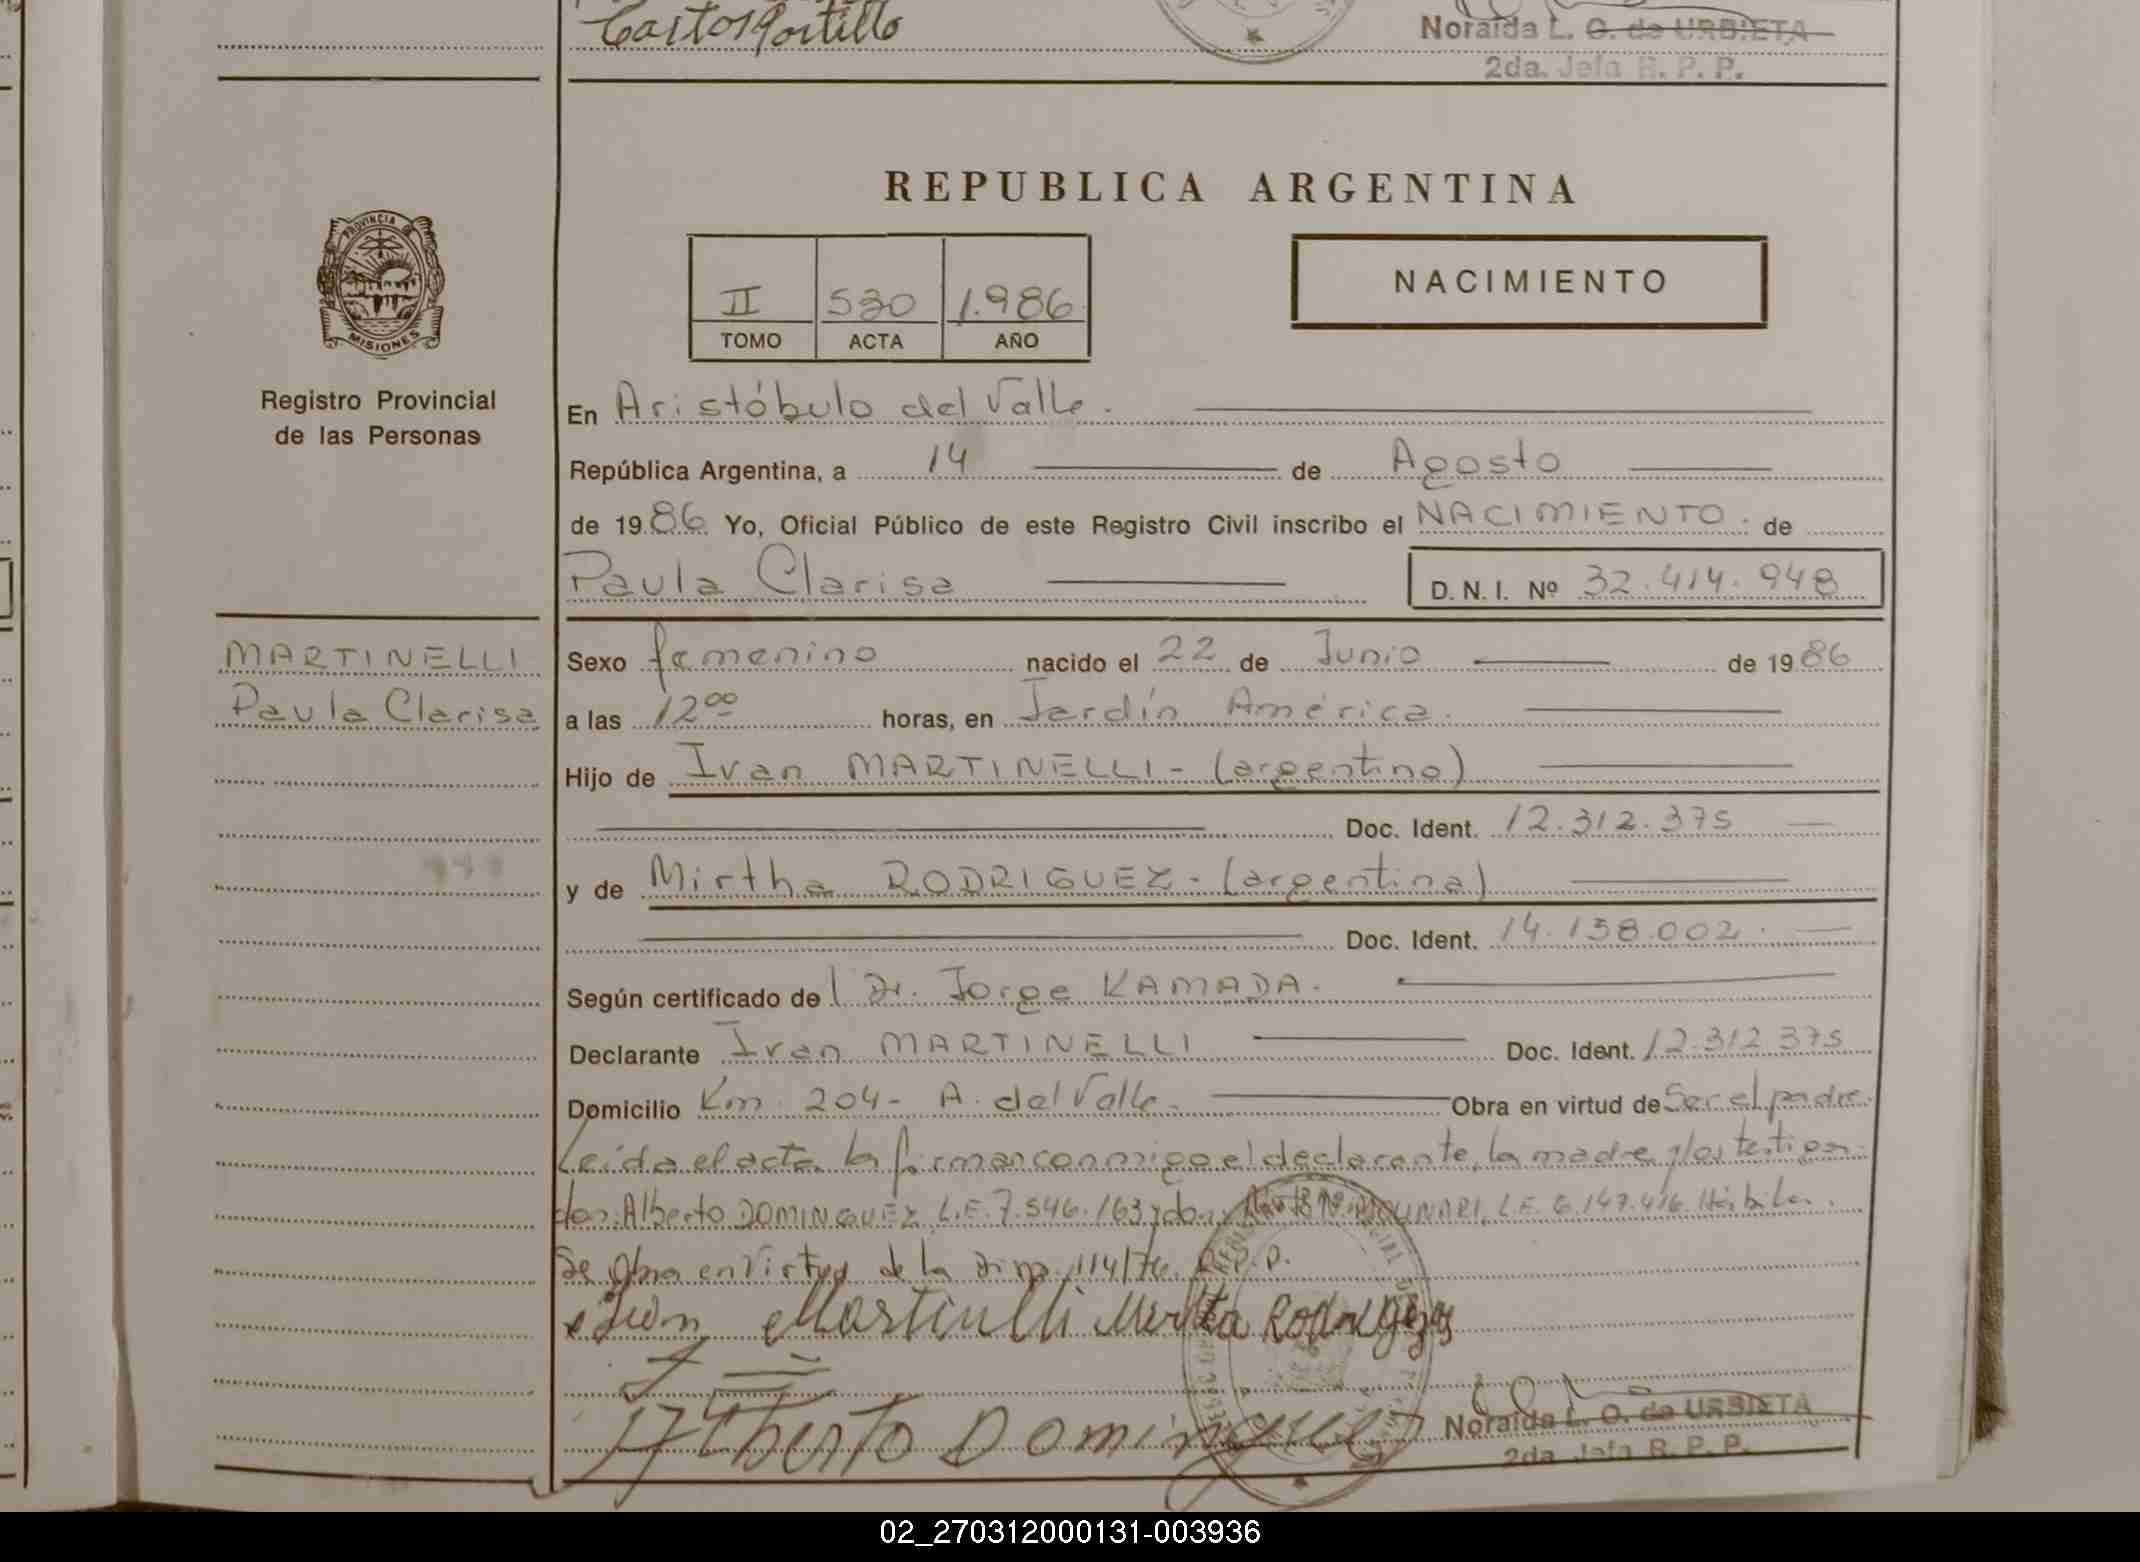 Castor Portillo
Noraida L. O. de URBIETA
2da. Jefa R. P. P.
REPUBLICA ARGENTINA
PROVINCIA DE
MISIONES
II 530 1.986
TOMO ACTA AÑO
NACIMIENTO
Registro Provincial
de las Personas
En Aristóbulo del Valle.
República Argentina, a 14 de Agosto
de 1986 Yo, Oficial Público de este Registro Civil inscribo el NACIMIENTO de
Paula Clarisa D. N. I. Nº 32.414.948
MARTINELLI
Paula Clarisa
Sexo femenino nacido el 22 de Junio de 1986
a las 12 00 horas, en Jardín América.
Hijo de Ivan MARTINELLI - (argentino)
Doc. Ident. 12.312.375
y de Mirtha RODRIGUEZ - (argentina)
Doc. Ident. 14.138.002.
Según certificado de l Dr. Jorge KAMADA.
Declarante Ivan MARTINELLI Doc. Ident. 12.312.375
Domicilio Km. 204 - A. del Valle. Obra en virtud de Ser el padre.
Leida el acta la firman conmigo el declarante, la madre y los testigos:
don Alberto DOMINGUEZ L.E. 7.546.163 y don L.E. 6.147.416. Hábiles.
Se obra en Virtud de la Disp. 114/76. R.P.P.
Ivan Martinelli Mirtha Rodriguez
Alberto Dominguez
Noraida L. O. de URBIETA
2da Jefa R. P. P.
02_270312000131-003936